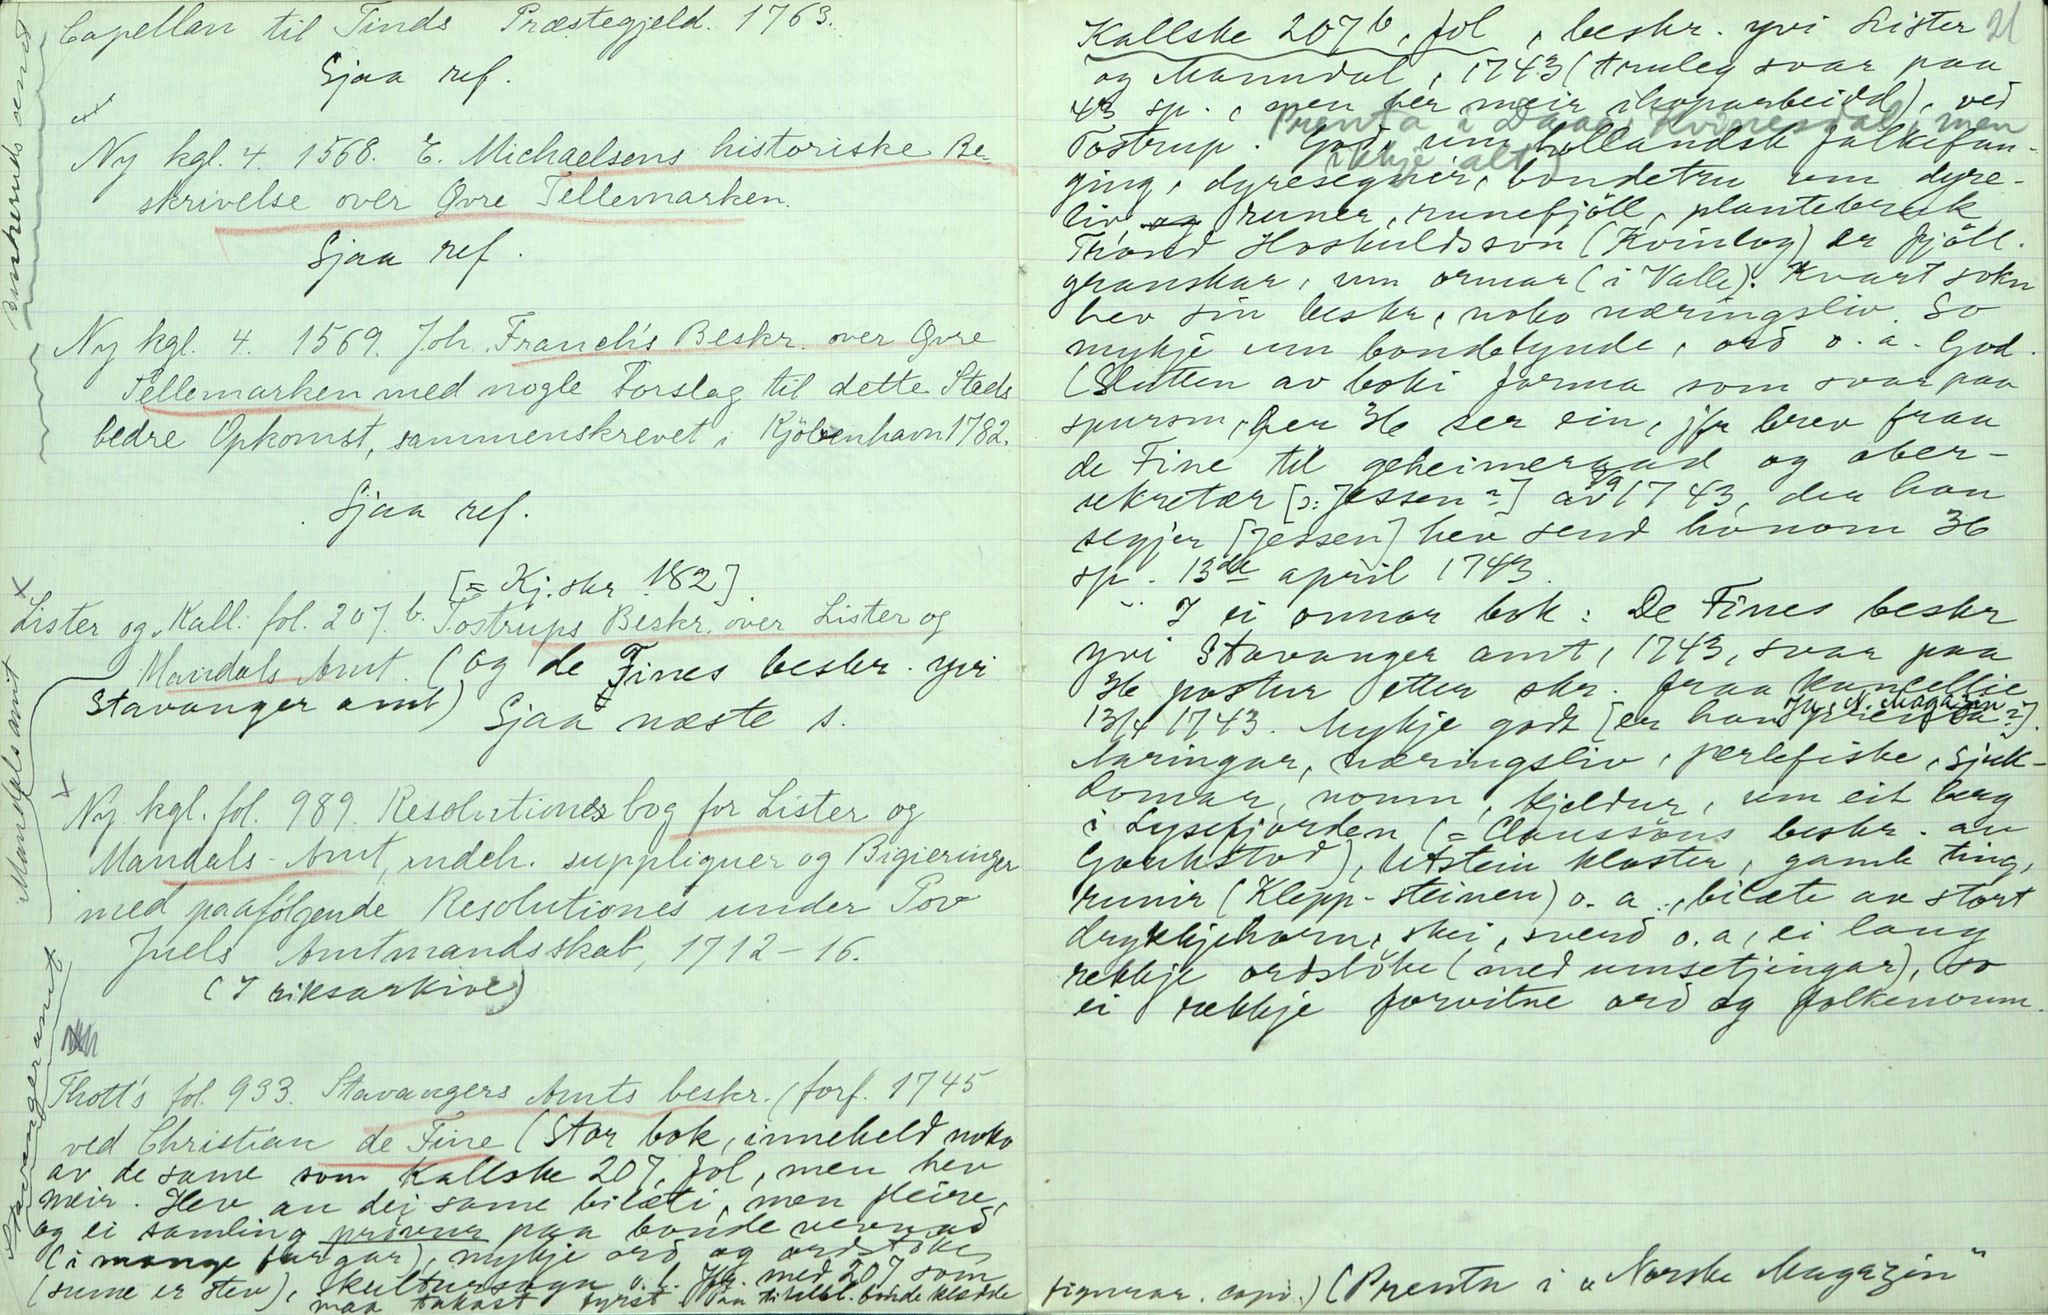 Capellan til Tinds Præstegjeld. 1763.
Sjaa ref.
Ny kgl. 4. 1568. E. Michaelsens historiske Be-
skrivelse over Øvre Tellemarken.
Sjaa ref.
Ny kgl. 4. 1569. Joh. Franck's Beskr. over Øvre
Tellemarken med nogle Forslag til dette Steds
bedre Opkomst, sammenskrevet i Kjöbenhavn 1782.
Sjaa ref.
[= Kj. skr 182].
Lister og Kall. fol. 207.b. Tostrups Beskr. over Lister og
Mandals Amt. (og de Fines beskr. yvi
Stavanger amt) Sjaa næste s.
Ny kgl. fol. 989. Resolutionsbog for Lister og
Mandals-Amt, indeh. suppliquer og Bigieringer
med paafölgende Resolutiones under Pov
Juels Amtmandsskab, 1712-16.
(I riksarkive)
Thott's fol. 933. Stavangers Amts beskr. (forf. 1745
ved Christian de Fine (Stor bok, inneheld noko
av de same som Kallske 207, fol, men hev
meir. Hev au dei same bilæti, men fleire,
og ei samling prövur paa bondevevnad
(i mange fargar), mykje ord og ordstöke
(sume er stev), kultursogn o.l. Jfr. med 207 som
maa takast fyrst. Paa titelbl. bondeklædde
Mandals amt
Stavanger amt
Kallske 207b, fol, beskr. yvi Lister 21
og Manndal, 1743 (truleg svar paa
43 sp., men her meir ihoparbeidd), ved
Prenta i Daae: Kvinesdal, men
Tostrup. God, um hollandsk falkefan-
ikkje alt)
ging, dyresegnir, bondetru um dyre-
liv, og runer, runefjöll, plantebruk
Thrond Hoskuldsson (Kvinlog) er fjöll-
granskar, um ormar (i Valle). Kvart sokn
hev sin beskr, noko næringsliv. So
mykje um bondelynde, ord o.a. God.
(Slutten av boki forma som svar paa
spursm, her 36 ser ein, jfr brev fraa
de Fine til geheimeraad og ober-
sekretær [ɔ: Jessen?] av 1743, der han
segjer [Jessen] hev send honom 36
sp. 13de april 1743.
I ei onnor bok: De Fines beskr
yvi Stavanger amt, 1743, svar paa
36 postur etter skr. fraa kancellie
13/4 1743. Mykje godt [er han prenta?].
Jfr. N. Magazin
Næringar, næringsliv, perlefiske, sjuk-
domar, nomn, kjeldur, um eit berg
i Lysefjorden (= Claussöns beskr. av
Goukstod), Utstein kloster, gamle ting,
runir (Klepp-steinen) o.a., bilæte av stort
drykkjehorn, skei, sverd o.a, ei lang
rekkje ordstöke (med umsetjingar), so
ei rekkje forvitne ord og folkenomn.
figurar. copi.) (Prenta i "Norske Magazin"